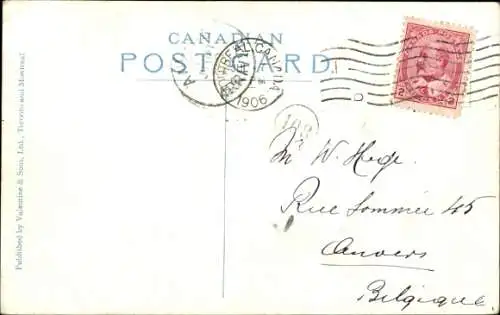 CANADIAN
POST CARD
MONTREAL, CANADA
1906
2 2
108
Mr W. Hege.
Rue Sommée 45
Anvers
Belgique
Published by Valentine & Sons, Ltd., Toronto and Montreal